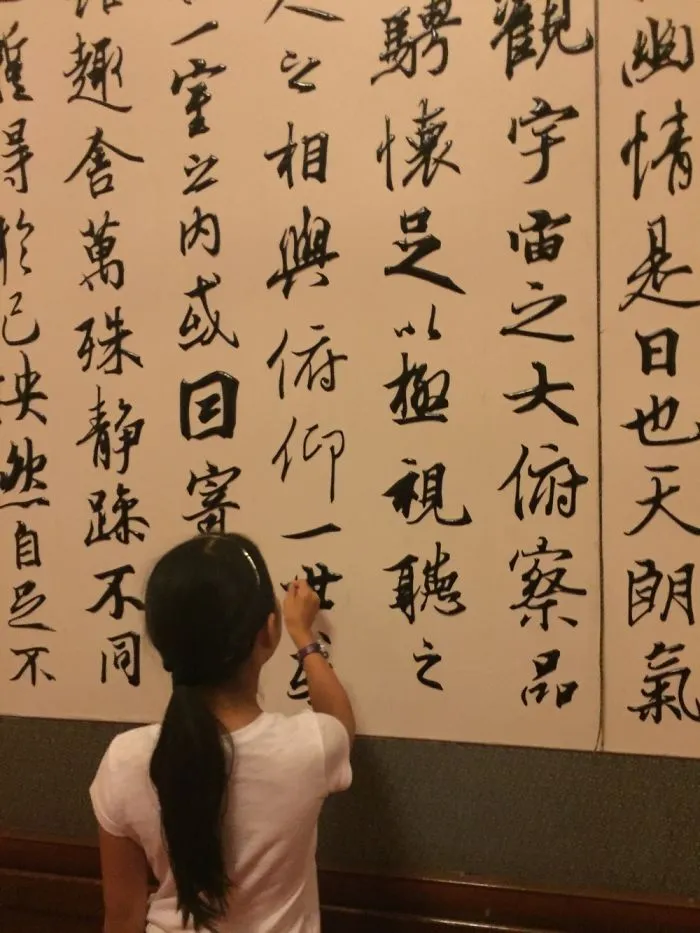 幽情是日也天朗氣
觀宇宙之大俯察品
騁懷足以極視聽之
人之相與俯仰一世或
一室之內或因寄
趣舍萬殊静躁不同
得於己怏然自足不